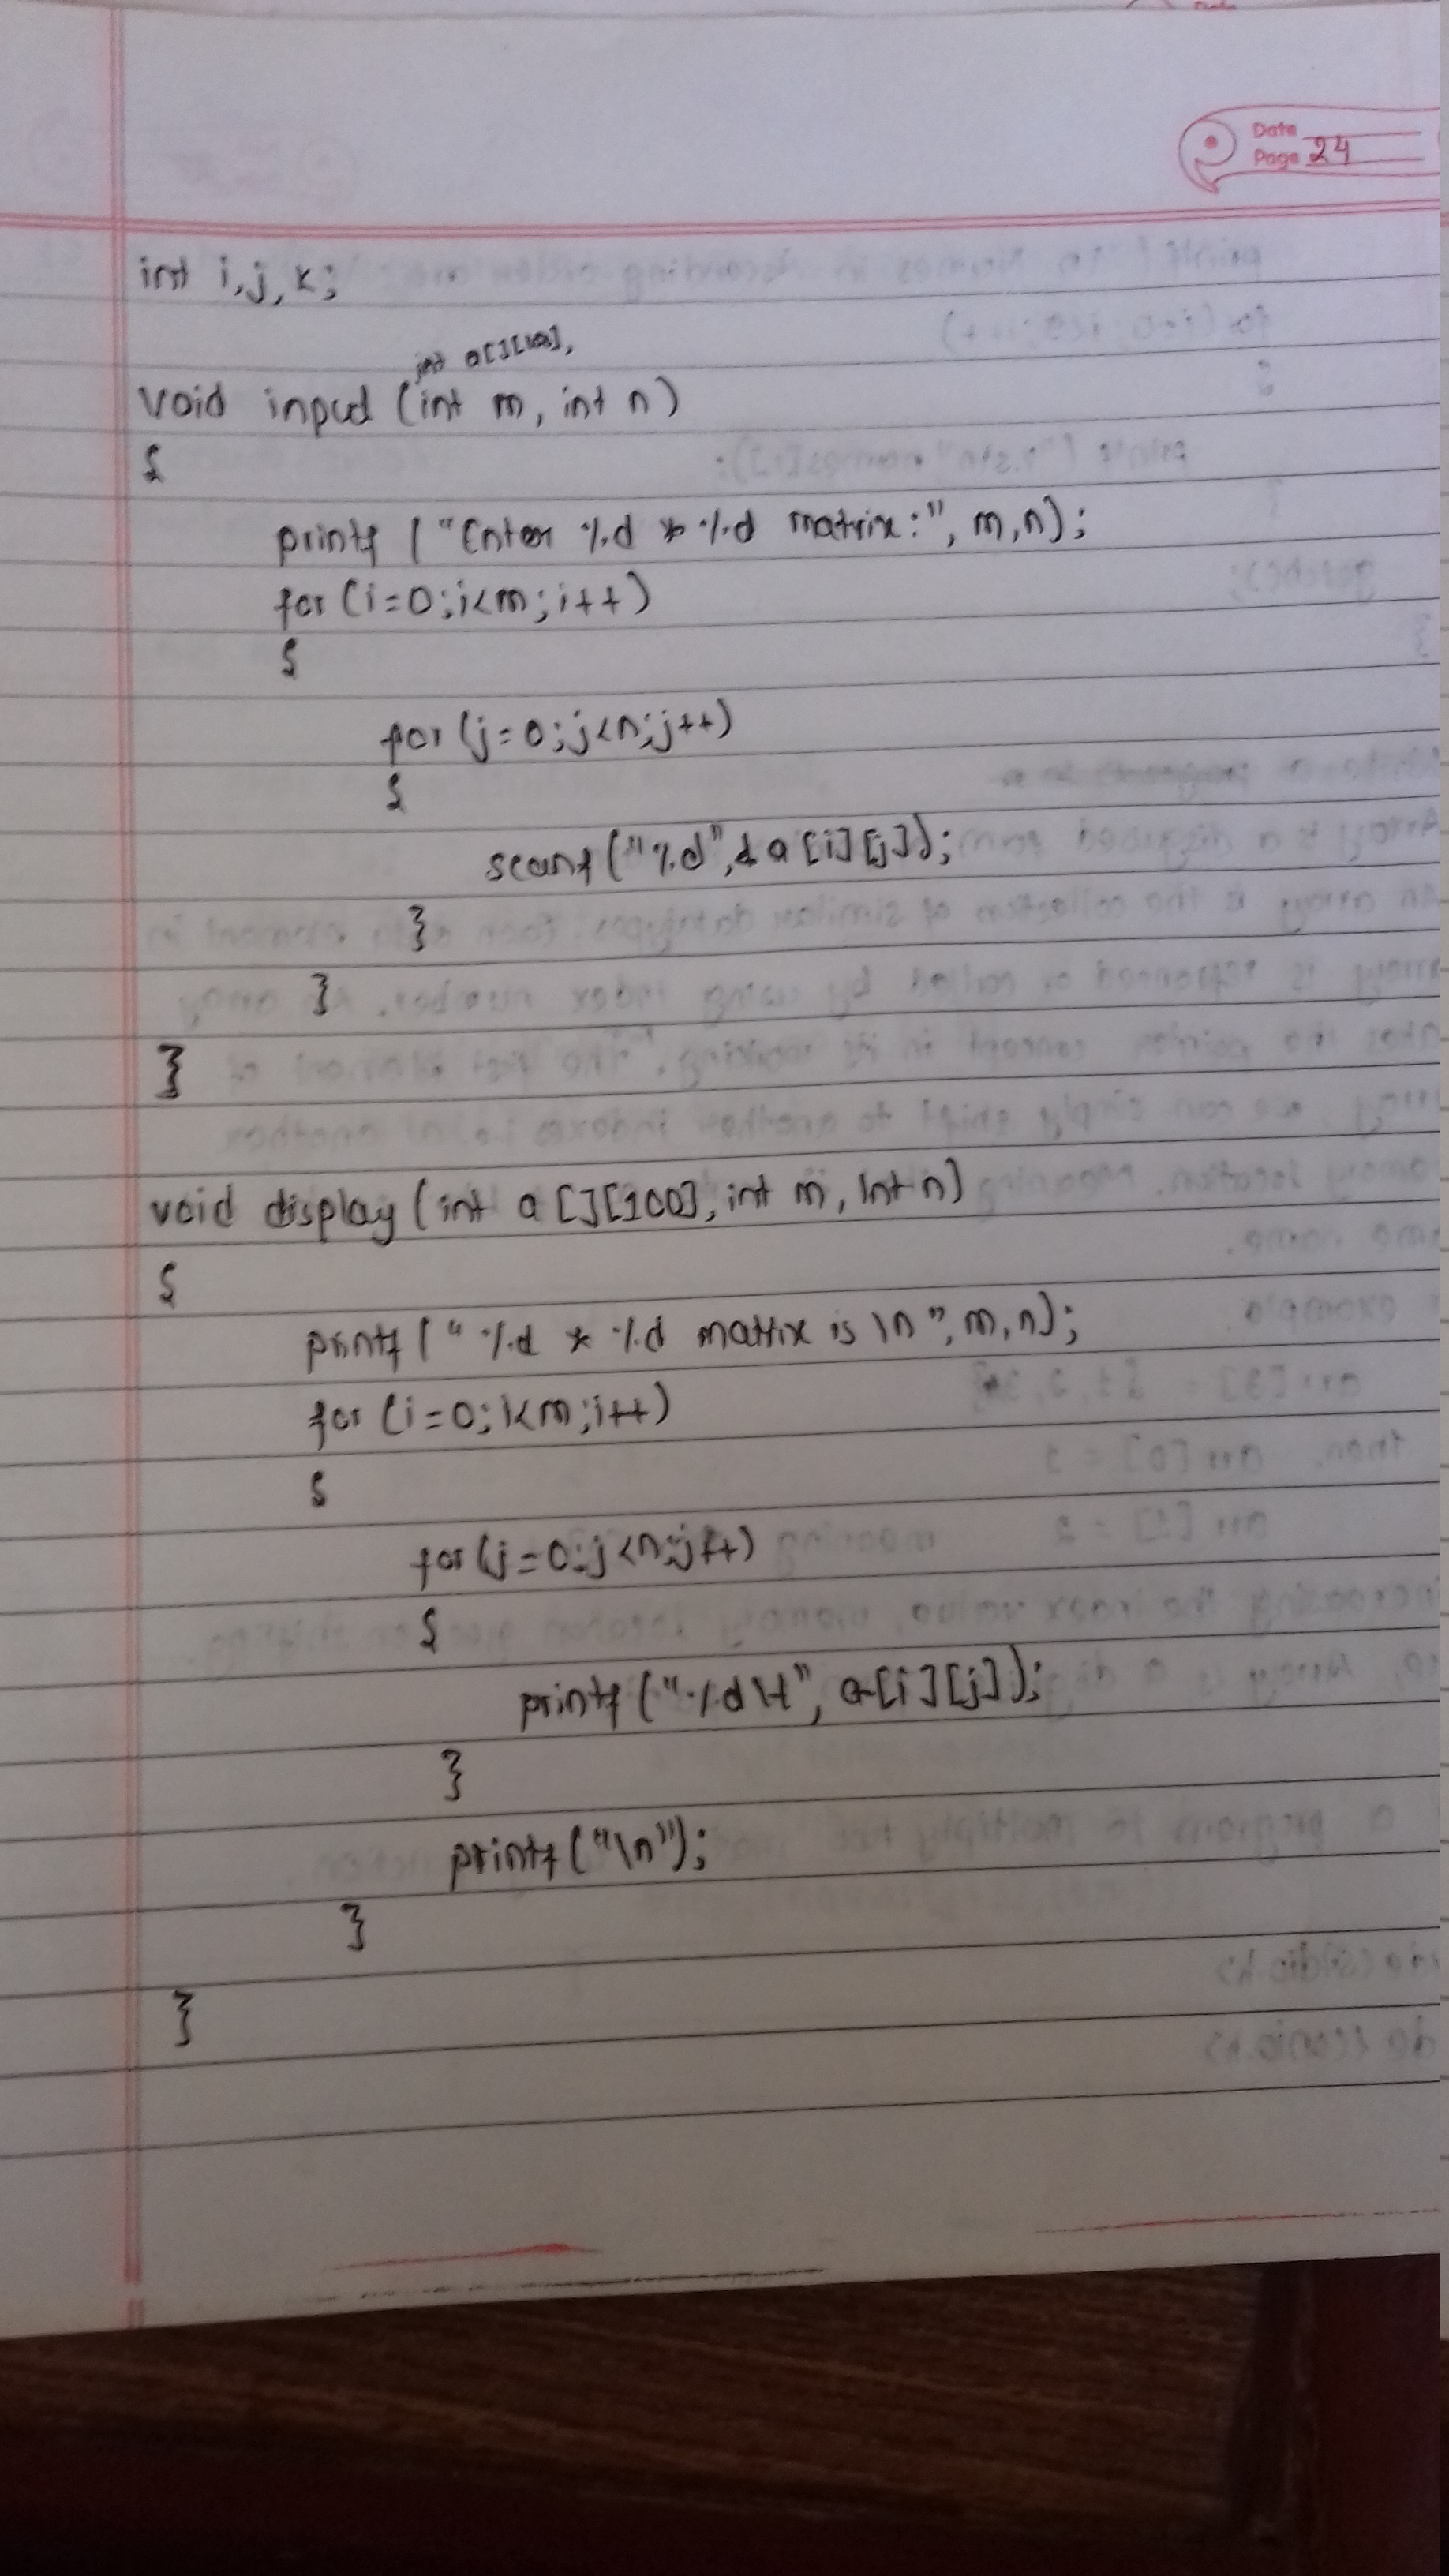 Date
Page 24
int i,j,k;
int a[][100],
void input (int m, int n)
{
printf ("Enter %d * %d matrix:", m,n);
for(i=0;i<m;i++)
{
for(j=0;j<n;j++)
{
scanf("%d",&a[i][j]);
}
}
}
void display (int a[][100], int m, int n)
{
printf(" %d * %d matrix is \n", m,n);
for (i=0;i<m;i++)
{
for(j=0;j<n;j++)
{
printf("%d\t", a[i][j]);
}
printf("\n");
}
}